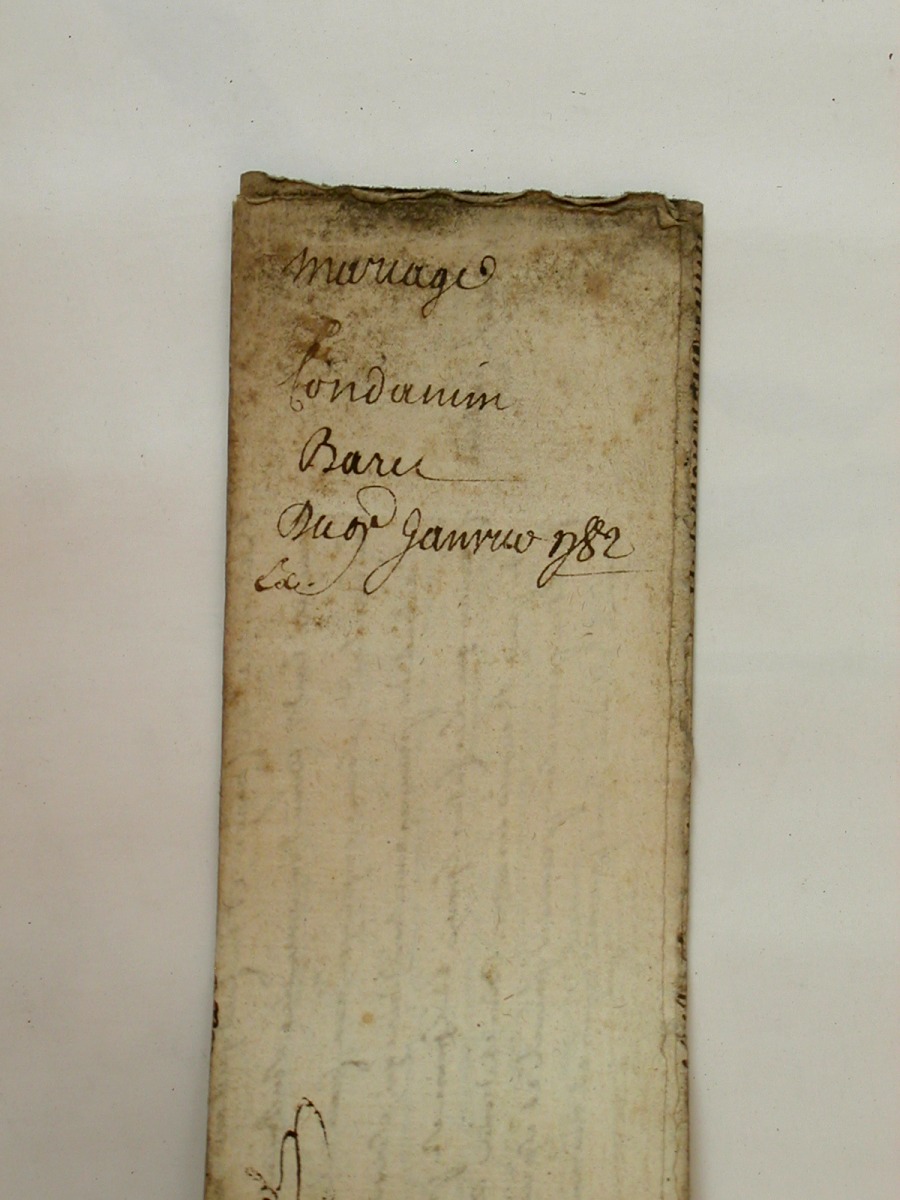 Mariage
Condamin
Baret
Du 9e Janvier 1782